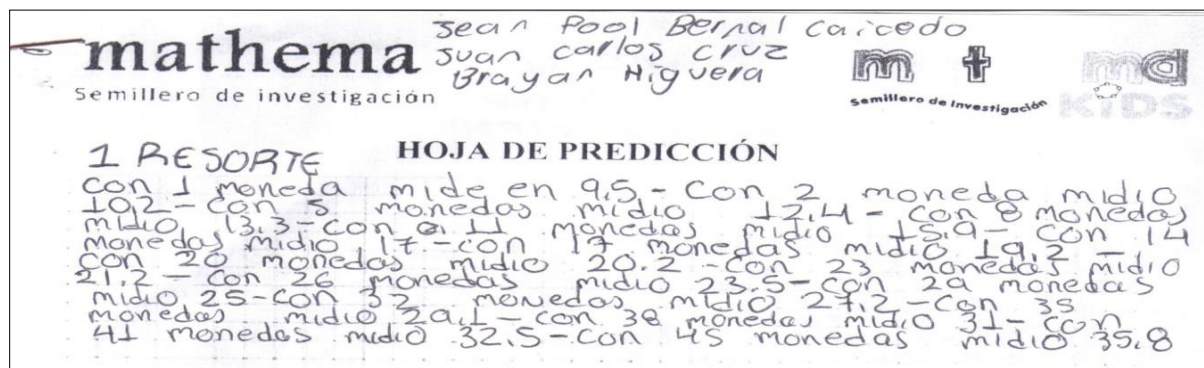 Jean Pool Bernal Caicedo
Juan Carlos Cruz
Brayan Higuera
mathema
Semillero de investigación
m t
Semillero de Investigación
ma
KIDS
HOJA DE PREDICCIÓN
1 RESORTE
con 1 moneda mide en 9,5 - Con 2 moneda midio
10,2 - Con 5 monedas midio 12,4 - con 8 monedas
midio 13,3 - con 11 monedas midio 15,9 - con 14
monedas midio 17 - con 17 monedas midio 19,2 -
con 20 monedas midio 20.2 - con 23 monedas midio
21,2 - con 26 monedas midio 23.5 - con 29 monedas
midio 25 - con 32 monedas midio 27,2 - con 35
monedas midio 29,1 - con 38 monedas midio 31 - con
41 monedas midio 32,5 - con 45 monedas midio 35,8